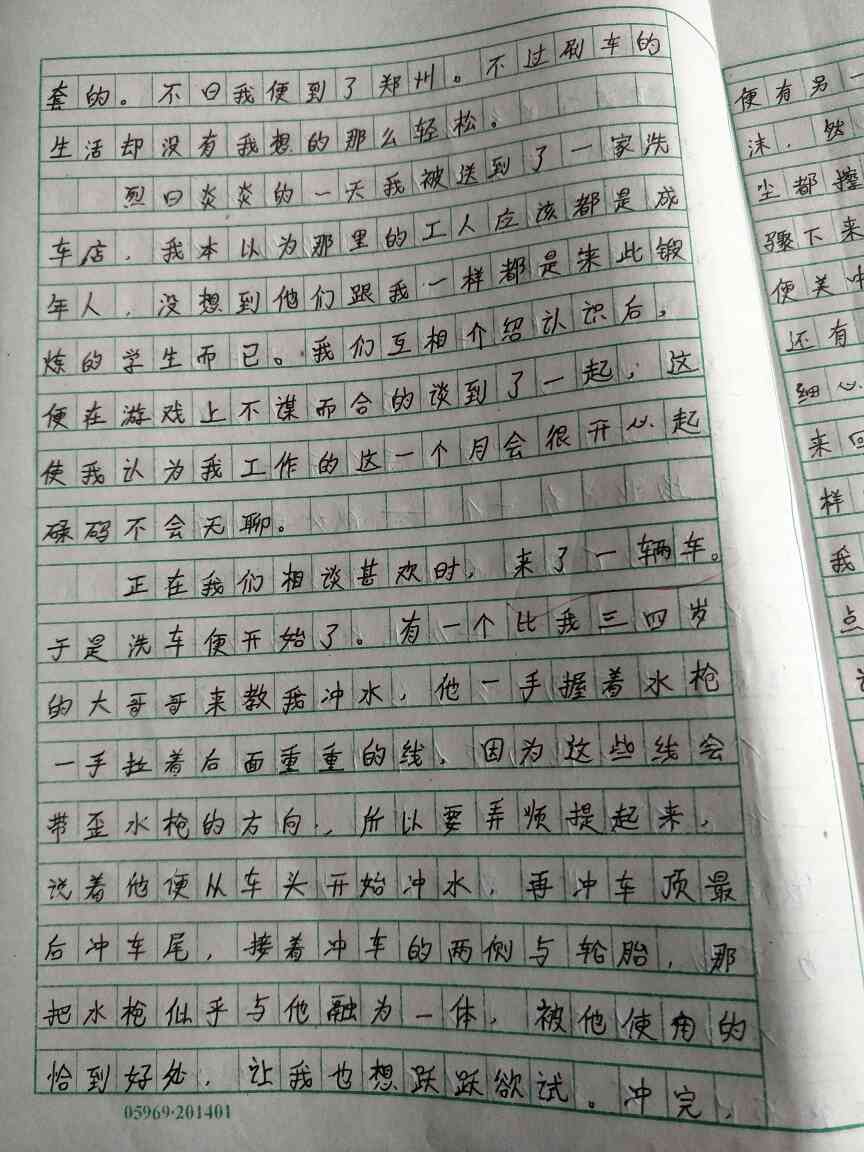 套的。不日我便到了郑州。不过刷车的
生活却没有我想的那么轻松。
烈日炎炎的一天我被送到了一家洗
车店，我本以为那里的工人应该都是成
年人，没想到他们跟我一样都是来此锻
炼的学生而已。我们互相介绍认识后，
便在游戏上不谋而合的谈到了一起，这
使我认为我工作的这一个月会很开心起
碌码不会无聊。
正在我们相谈甚欢时，来了一辆车。
于是洗车便开始了。有一个比我三四岁
的大哥哥来教我冲水，他一手握着水枪
一手拉着后面重重的线，因为这些线会
带歪水枪的方向，所以要弄顺提起来，
说着他便从车头开始冲水，再冲车顶最
后冲车尾，接着冲车的两侧与轮胎，那
把水枪似乎与他融为一体，被他使用的
恰到好处，让我也想跃跃欲试。冲完，
05969·201401
便有另一
沫，然
尘都擦
骤下来
便美中
还有
细心
来回
样
我
点